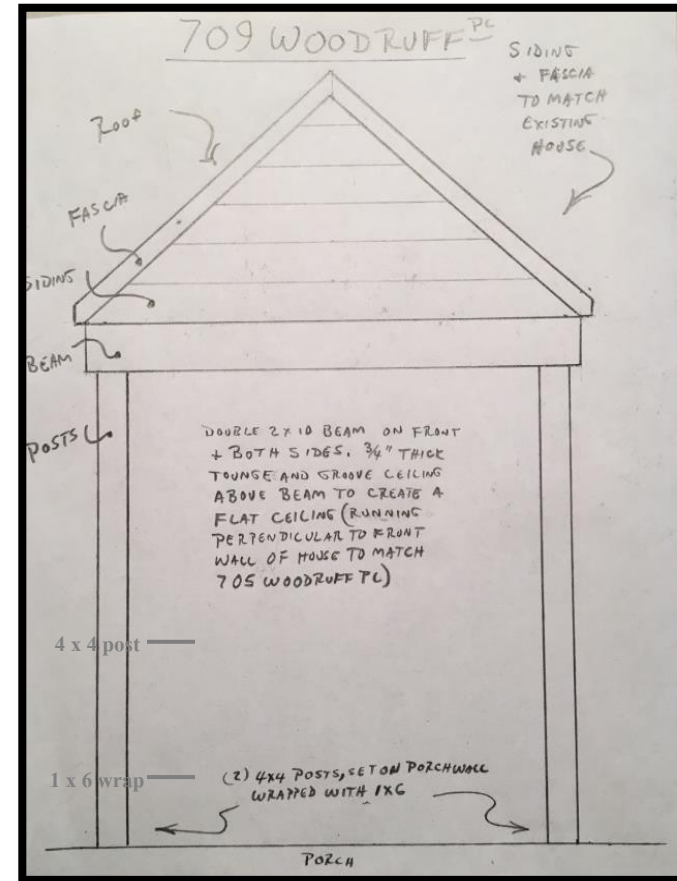 709 WOODRUFF PL
SIDING
+ FASCIA
TO MATCH
EXISTING
HOUSE
Roof
FASCIA
SIDING
BEAM
POSTS
DOUBLE 2x10 BEAM ON FRONT
+ BOTH SIDES. 3/4" THICK
TOUNGE AND GROOVE CEILING
ABOVE BEAM TO CREATE A
FLAT CEILING (RUNNING
PERPENDICULAR TO FRONT
WALL OF HOUSE TO MATCH
705 WOODRUFF PL)
4 x 4 post
1 x 6 wrap
(2) 4x4 POSTS, SET ON PORCH WALL
WRAPPED WITH 1x6
PORCH